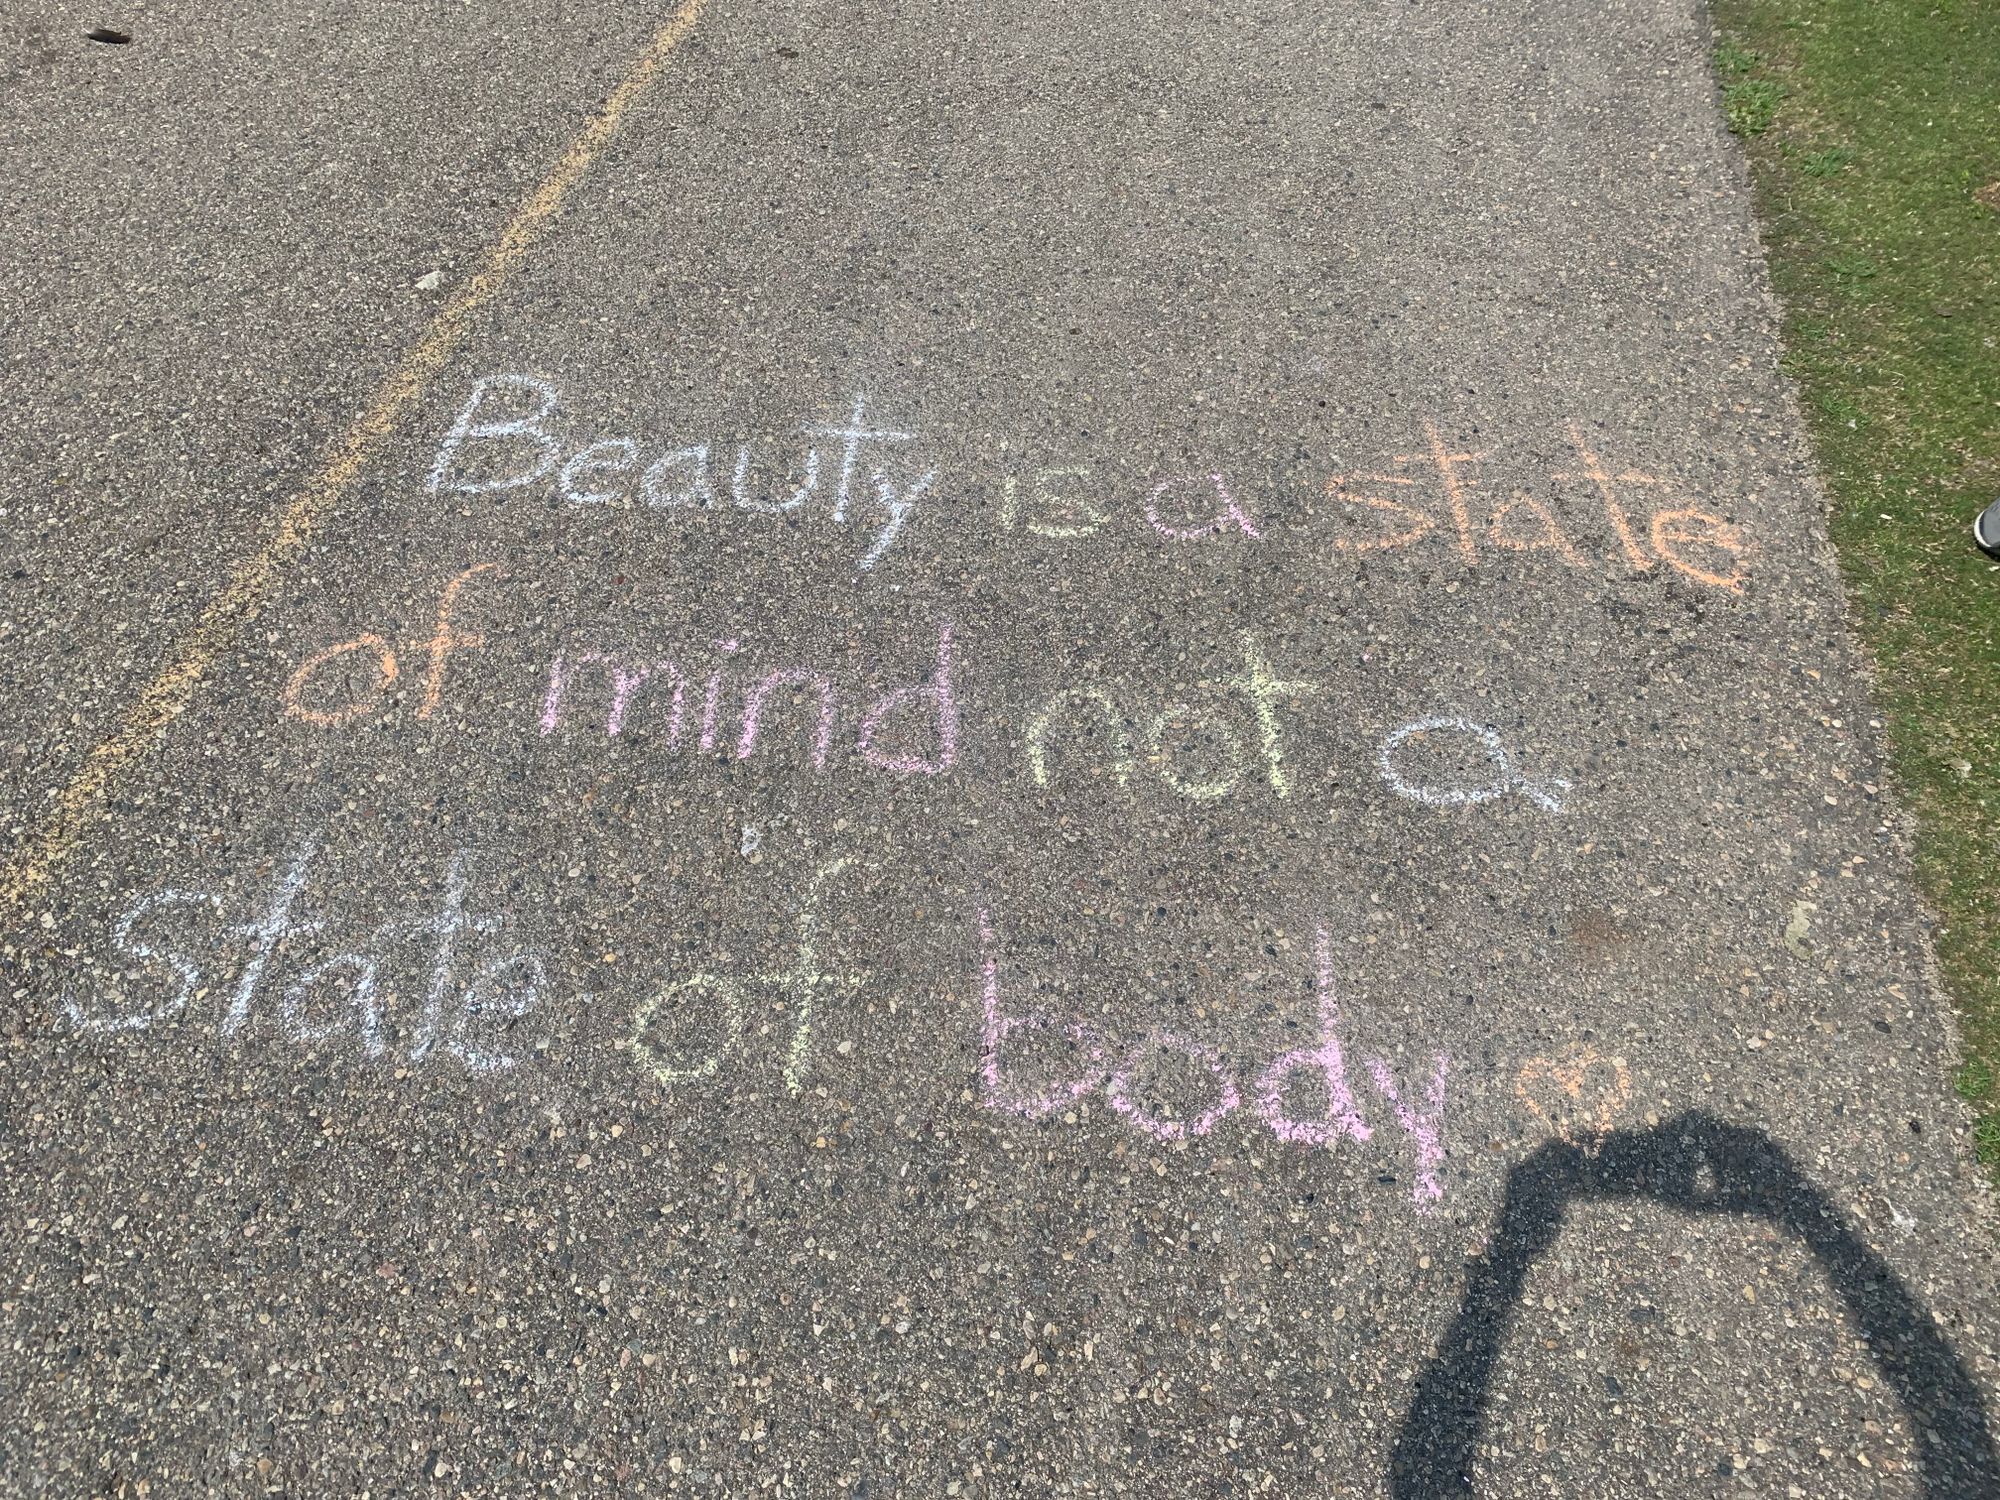 Beauty is a state
of mind not a
state of body